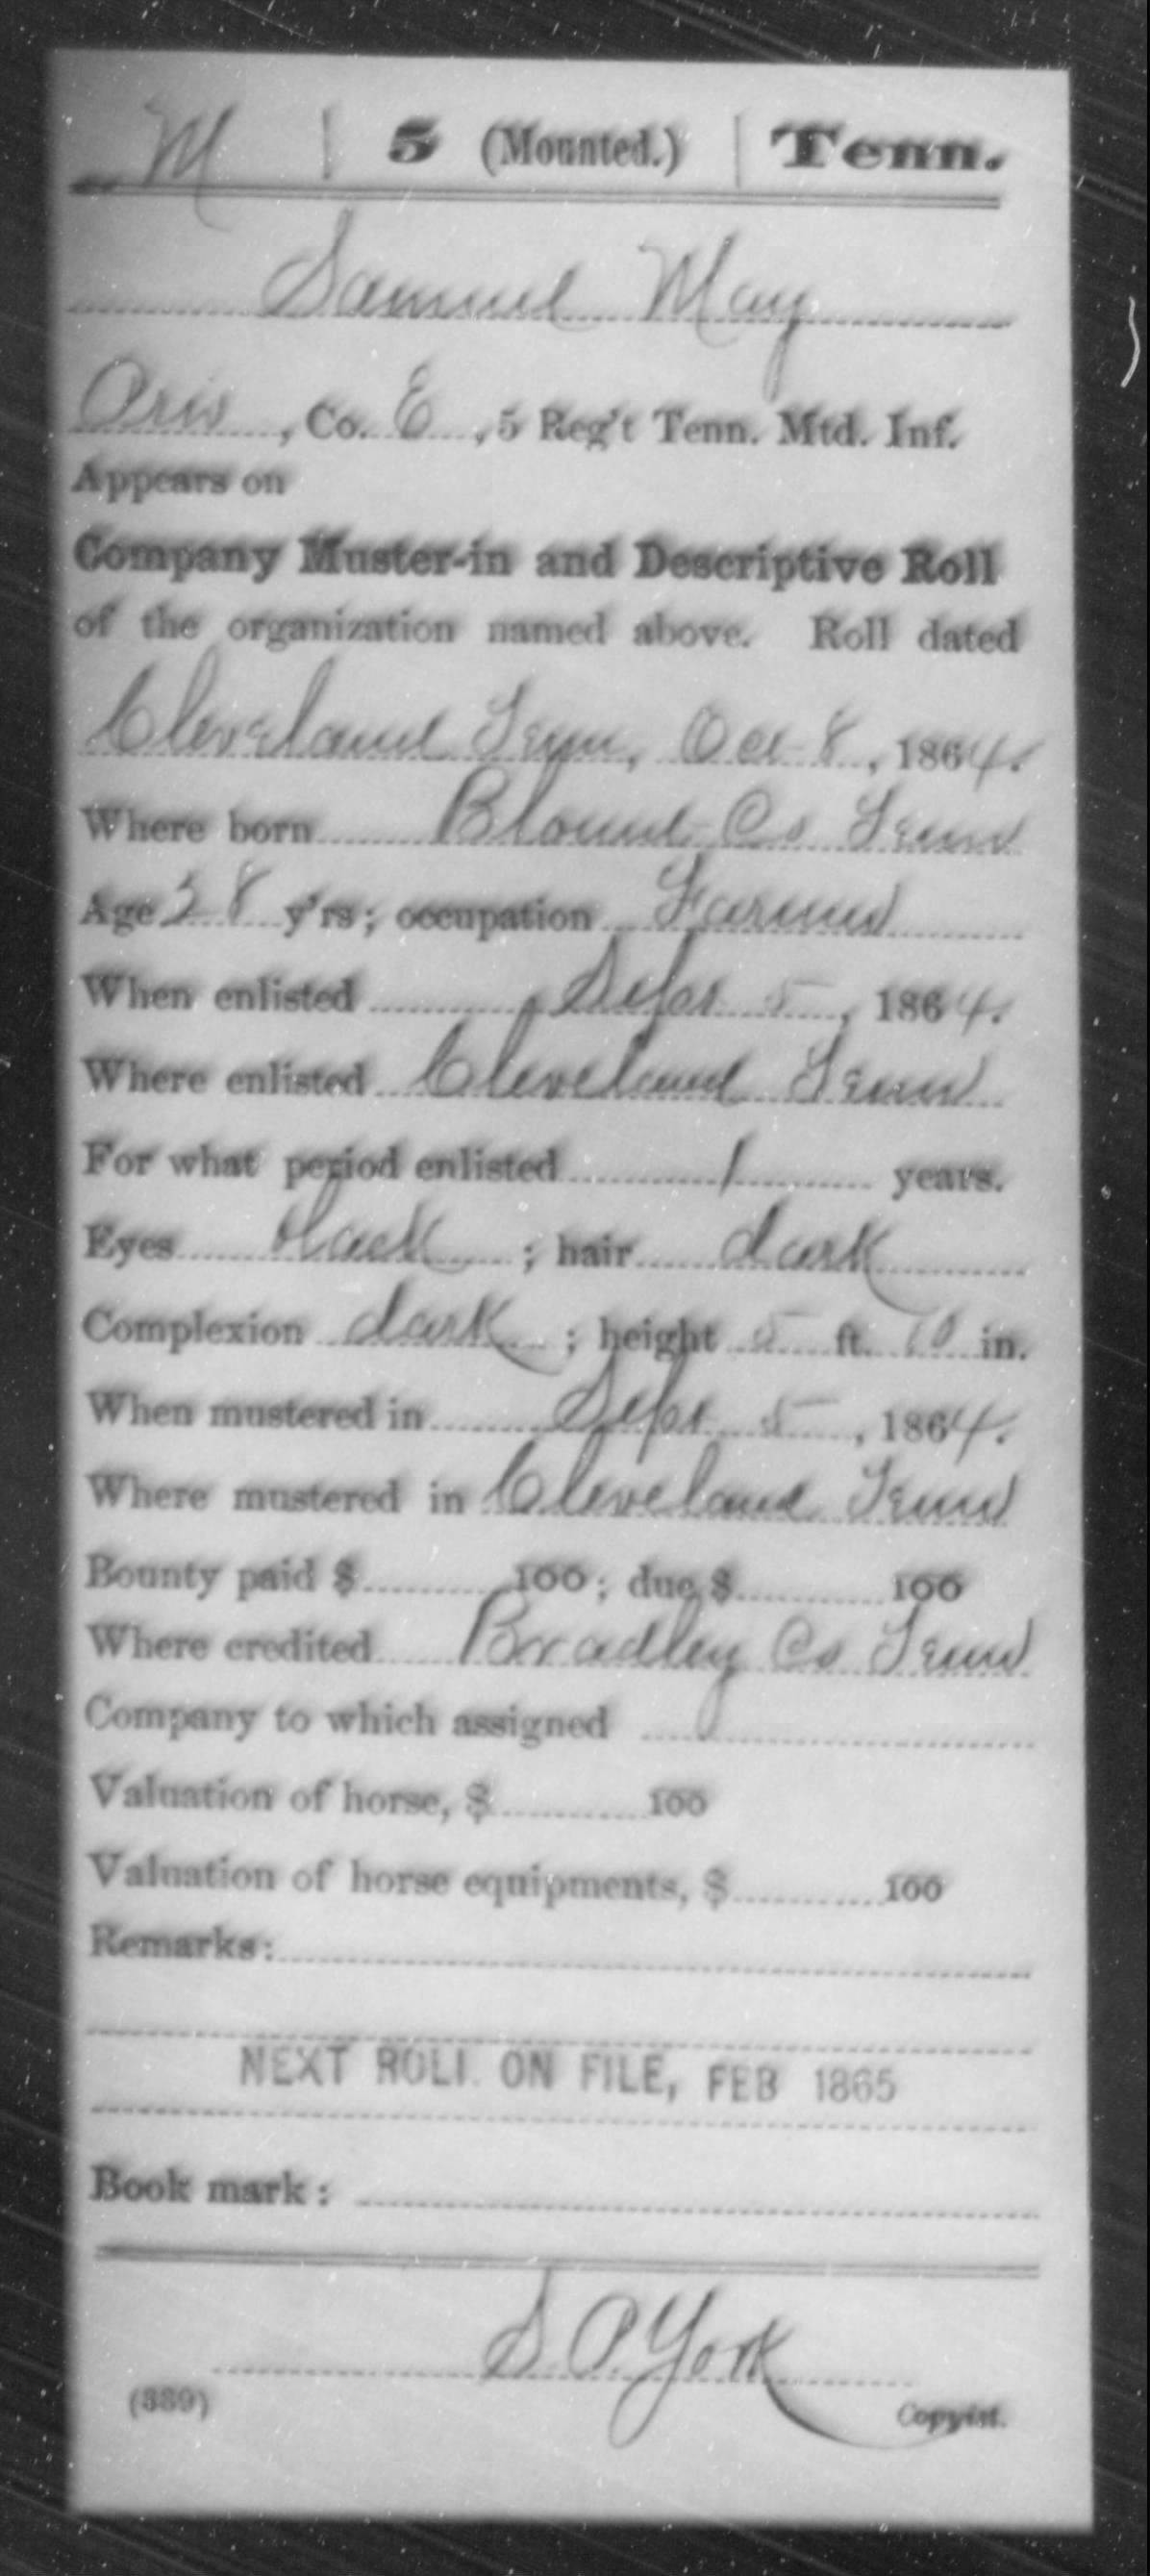 M | 5 (Mounted.) | Tenn.
Samuel May
Priv, Co. E, 5 Reg't Tenn. Mtd. Inf.
Appears on
Company Muster-in and Descriptive Roll
of the organization named above. Roll dated
Cleveland Tenn, Oct 8, 1864.
Where born Blount Co Tenn
Age 38 y'rs; occupation Farmer
When enlisted Sept 5, 1864.
Where enlisted Cleveland Tenn
For what period enlisted 1 years.
Eyes black; hair dark
Complexion dark; height 5 ft. 10 in.
When mustered in Sept 5, 1864.
Where mustered in Cleveland Tenn
Bounty paid $ 100; due $ 100
Where credited Bradley Co Tenn
Company to which assigned
Valuation of horse, $ 100
Valuation of horse equipments, $ 100
Remarks:
NEXT ROLL ON FILE, FEB 1865
Book mark:
S. P. York
(389) Copyist.